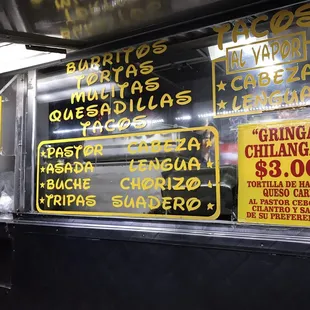 BURRITOS
TORTAS
MULITAS
QUESADILLAS
TACOS
PASTOR CABEZA
ASADA LENGUA
BUCHE CHORIZO
TRIPAS SUADERO
TACOS
AL VAPOR
CABEZA
LENGUA
"GRINGA
CHILANGA
$3.00
TORTILLA DE HA
QUESO CAR
AL PASTOR CEBO
CILANTRO Y SA
DE SU PREFEREN